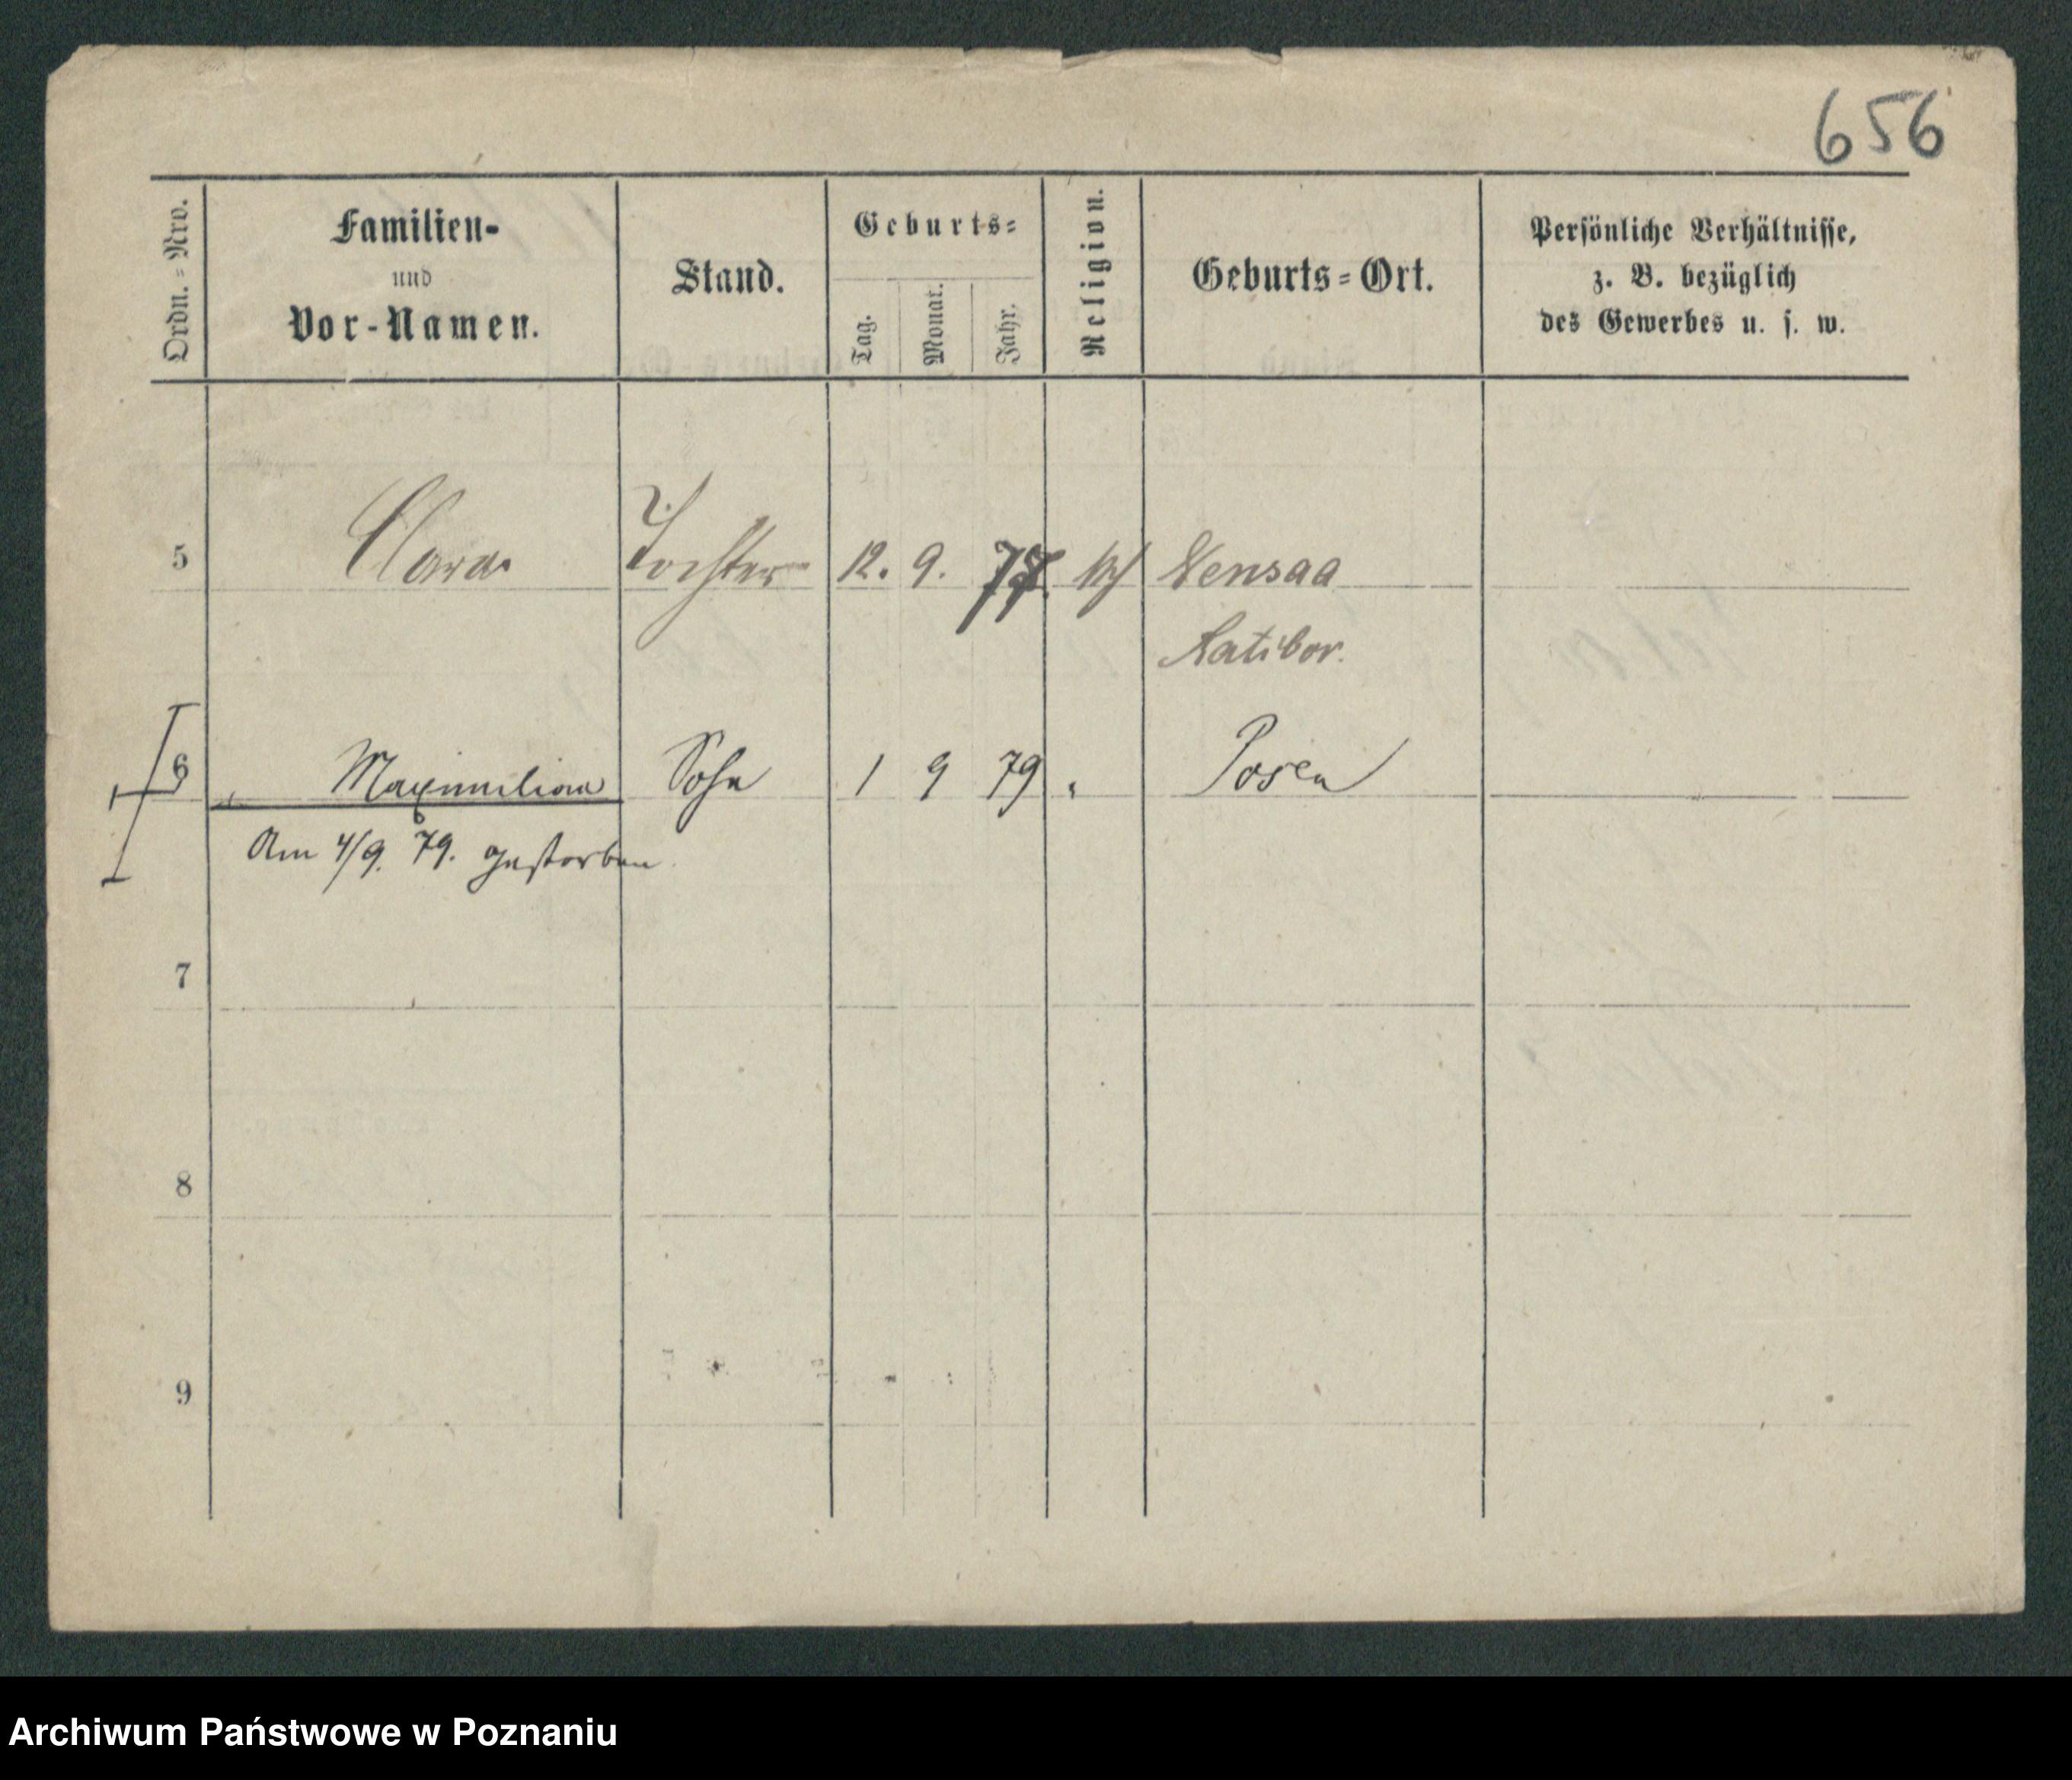 656
Ordn.=Nro.
Familien-
und
Vor-Namen.
Stand.
Geburts=
Tag.
Monat.
Jahr.
Religion.
Geburts=Ort.
Persönliche Verhältnisse,
z. B. bezüglich
des Gewerbes u. s. w.
5 Clara Tochter 12. 9. 77. Nensaa
Ratibor.
6 Maximilian Sohn 1 9 79 " Posen
Am 4/9. 79. gestorben
7
8
9
Archiwum Państwowe w Poznaniu